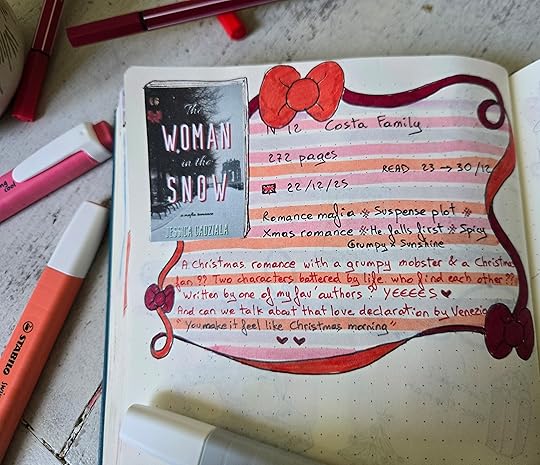 The
WOMAN
in the
SNOW
a mafia romance
JESSICA GADZIALA
N°12 Costa Family
272 pages
READ 23 → 30/12
22/12/25
Romance mafia ※ Suspense plot ※
Xmas romance ※ He falls first ※ Spicy
Grumpy X Sunshine
A Christmas romance with a grumpy mobster & a Christma
fan ?? Two characters battered by life who find each other ??
Written by one of my fav authors ? YEEEES ♥
And can we talk about that love declaration by Venezio
"You make it feel like Christmas morning"
STABILO
cool